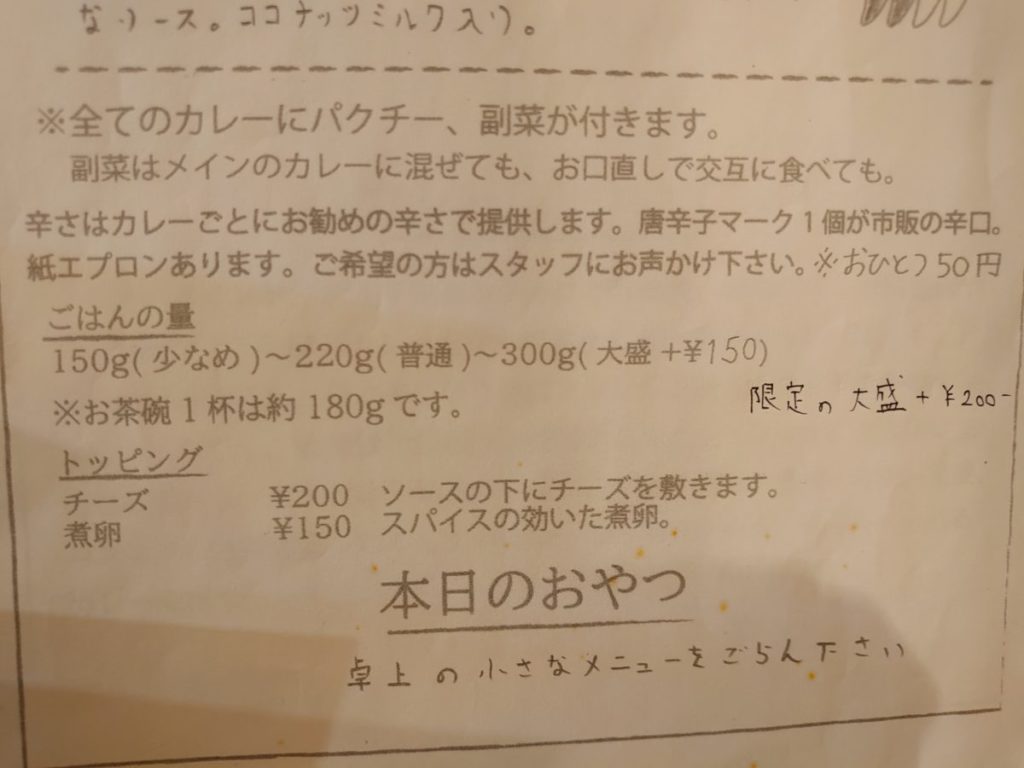 なソース。ココナッツミルク入り。
※全てのカレーにパクチー、副菜が付きます。
副菜はメインのカレーに混ぜても、お口直しで交互に食べても。
辛さはカレーごとにお勧めの辛さで提供します。唐辛子マーク1個が市販の辛口。
紙エプロンあります。ご希望の方はスタッフにお声かけ下さい。※おひとつ50円
ごはんの量
150g(少なめ)～220g(普通)～300g(大盛+¥150)
限定の大盛+¥200-
※お茶碗1杯は約180gです。
トッピング
チーズ ¥200 ソースの下にチーズを敷きます。
煮卵 ¥150 スパイスの効いた煮卵。
本日のおやつ
卓上の小さなメニューをごらん下さい